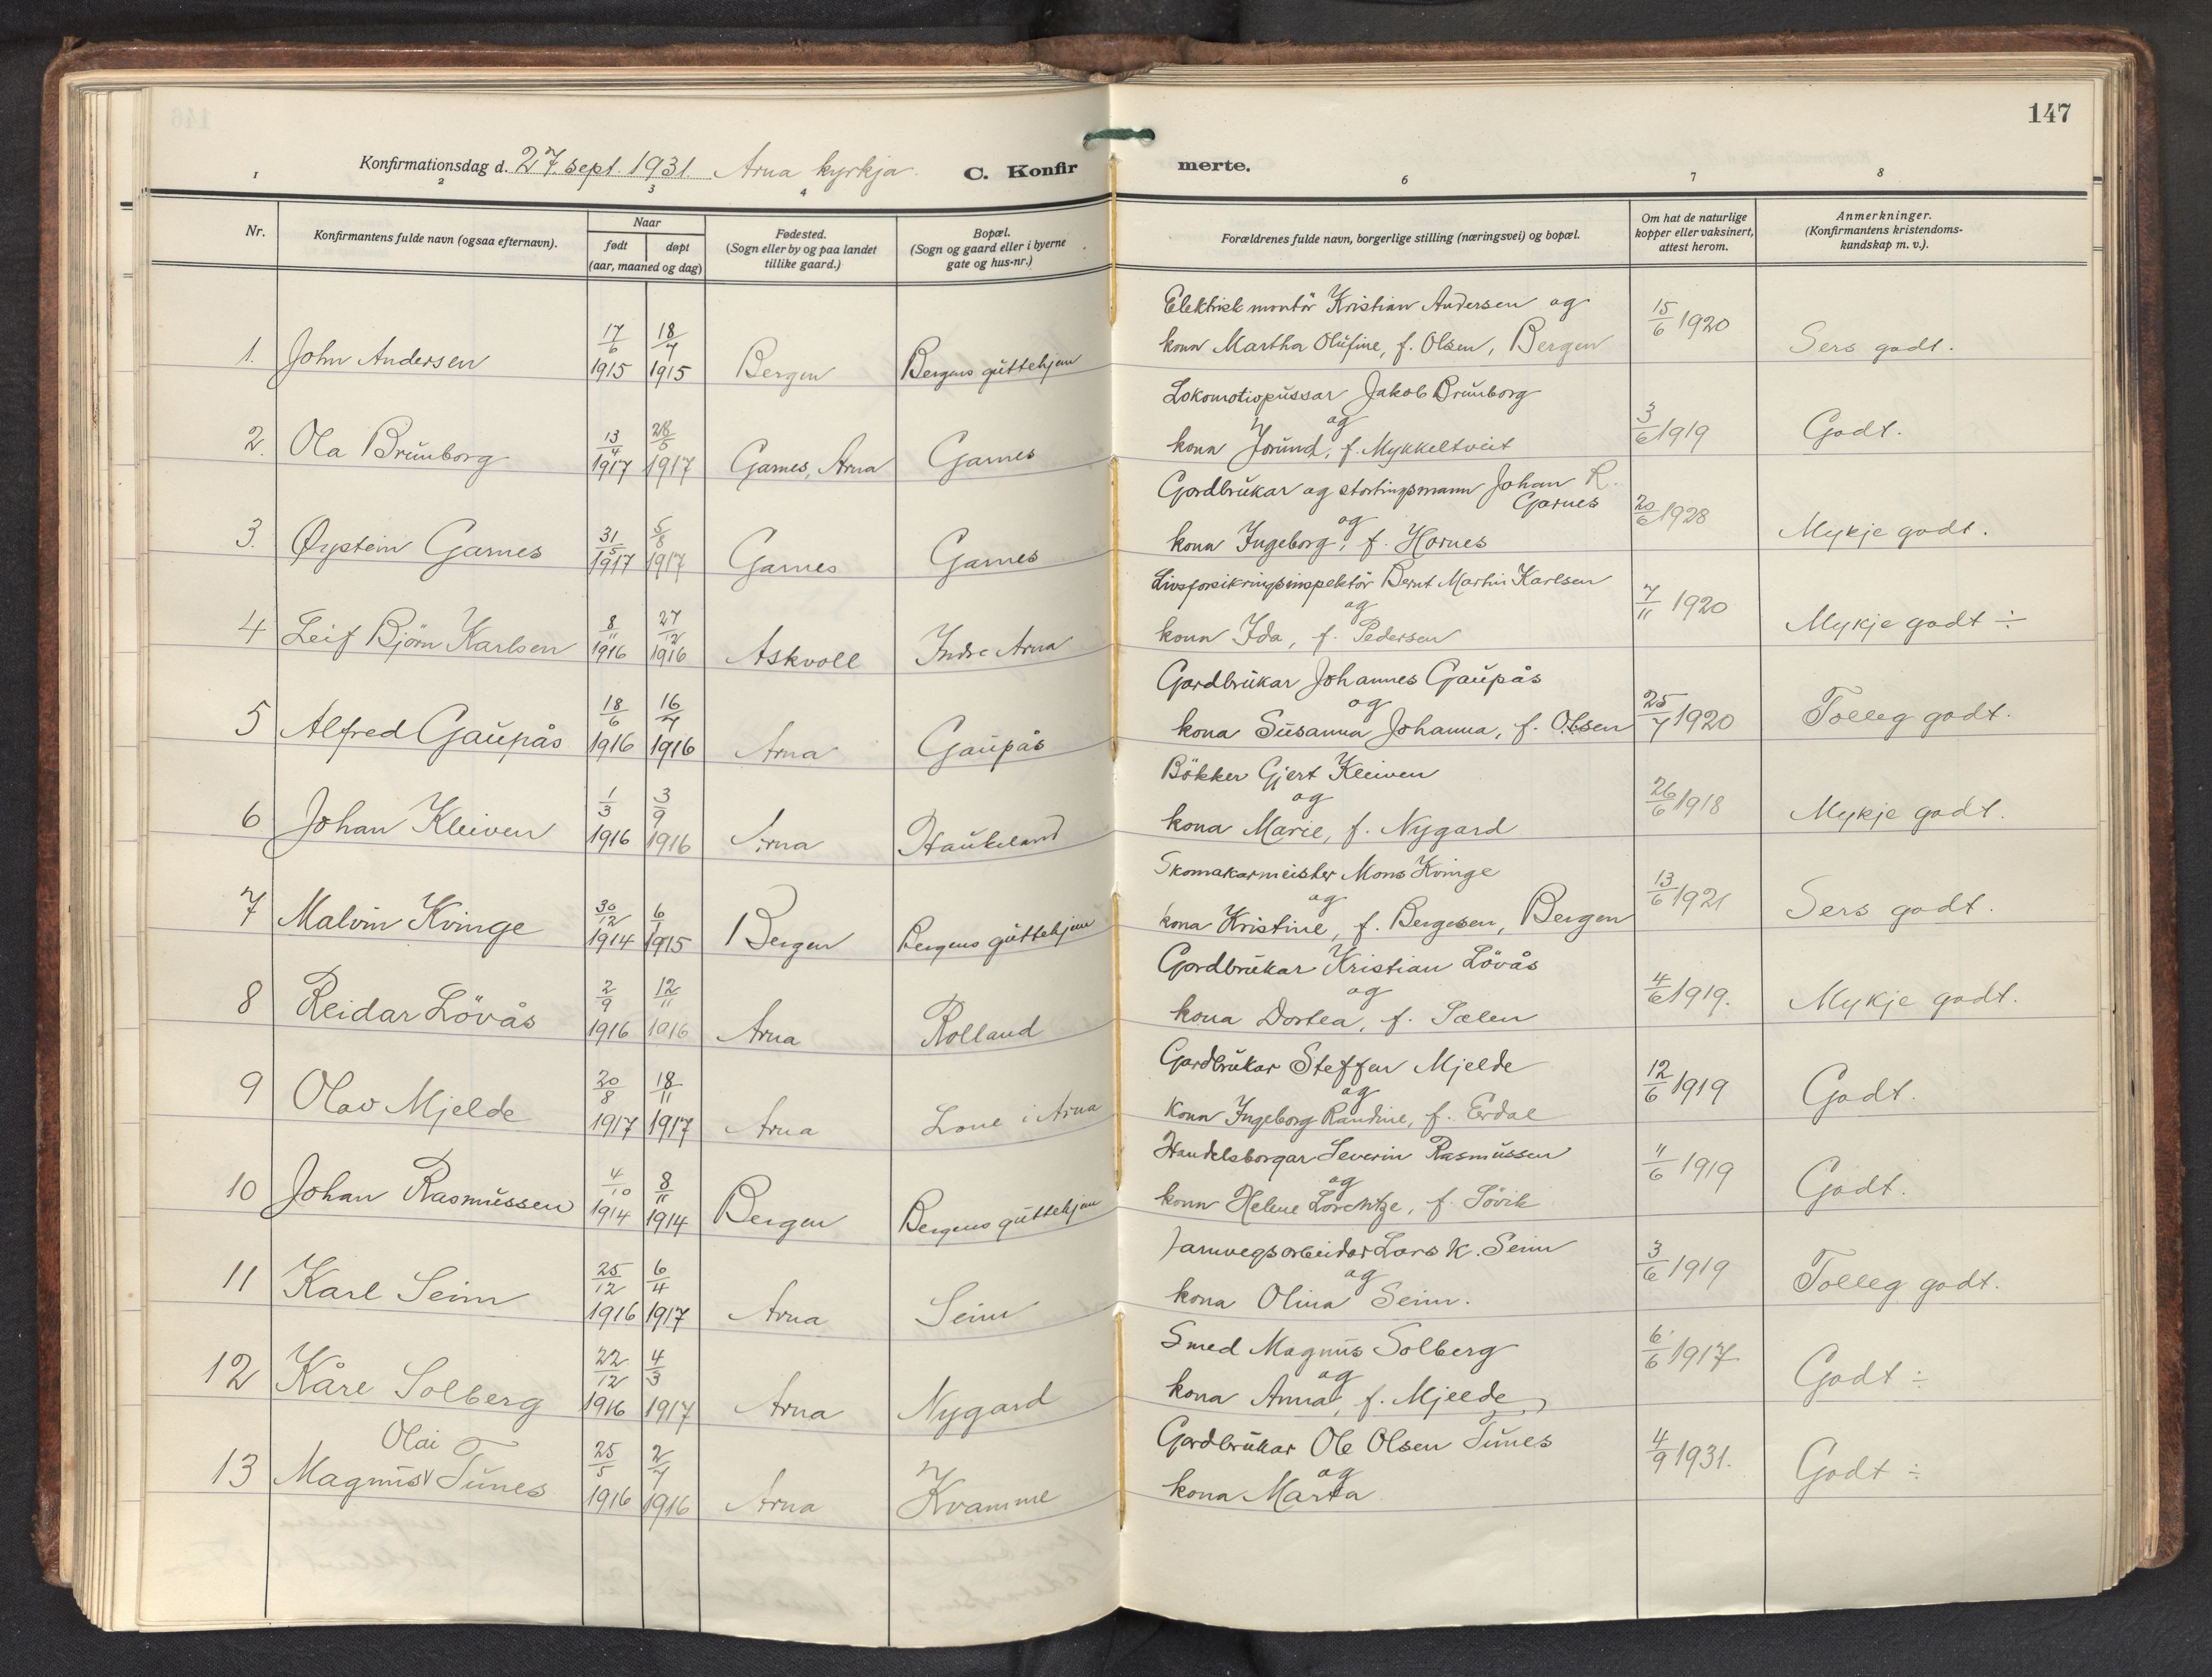 147
Konfirmationsdag d. 27. sept. 1931. Arna kyrkja.
C. Konfirmerte.
1 2 3 4 6 7 8
Nr.
Konfirmantens fulde navn (ogsaa efternavn).
Naar
født døpt
(aar, maaned og dag)
Fødested.
(Sogn eller by og paa landet
tillike gaard.)
Bopæl.
(Sogn og gaard eller i byerne
gate og hus-nr.)
Forældrenes fulde navn, borgerlige stilling (næringsvei) og bopæl.
Om hat de naturlige
kopper eller vaksinert,
attest herom.
Anmerkninger.
(Konfirmantens kristendoms-
kundskap m. v.).
1. John Andersen 17/6 1915 18/7 1915 Bergen Bergens guttehjem
Elektrisk montör Kristian Andersen og
kona Martha Olufine, f. Olsen, Bergen
15/6 1920 Sers godt.
2. Ola Brunborg 13/4 1917 28/5 1917 Garnes, Arna Garnes
Lokomotivpussar Jakob Brunborg
og
kona Jorund, f. Mykkeltveit
3/6 1919 Godt.
3. Øystein Garnes 31/5 1917 5/8 1917 Garnes Garnes
Gardbrukar og stortingsmann Johan R.
Garnes
og
kona Ingeborg, f. Hornes
20/6 1928 Mykje godt.
4 Leif Björn Karlsen 8/11 1916 27/12 1916 Askvoll Indre Arna
Livsforsikringsinspektör Bernt Martin Karlsen
og
kona Ida, f. Pedersen
7/11 1920 Mykje godt ÷
5 Alfred Gaupås 18/6 1916 16/7 1916 Arna Gaupås
Gardbrukar Johannes Gaupås
og
kona Susanna Johanna, f. Olsen
25/7 1920 Tolleg godt.
6 Johan Kleiven 1/3 1916 3/9 1916 Arna Haukeland
Bökker Gjert Kleiven
og
kona Marie, f. Nygard
26/6 1918 Mykje godt.
7 Malvin Kvinge 30/12 1914 6/1 1915 Bergen Bergens guttehjem
Skomakarmeister Mons Kvinge
og
kona Kristine, f. Bergesen, Bergen
13/6 1921 Sers godt.
8 Reidar Lövås 2/9 1916 12/11 1916 Arna Rolland
Gardbrukar Kristian Lövås
og
kona Dortea, f. Sælen
4/6 1919. Mykje godt.
9 Olav Mjelde 20/8 1917 18/11 1917 Arna Lone i Arna
Gardbrukar Steffen Mjelde
og
Kona Ingeborg Randine, f. Erdal
12/6 1919 Godt.
10 Johan Rasmussen 4/10 1914 8/11 1914 Bergen Bergens guttehjem
Handelsborgar Severin Rasmussen
og
kona Helene Lorentze, f. Sövik
11/6 1919 Godt.
11 Karl Seim 25/12 1916 6/4 1917 Arna Seim
Jarnvegsarbeidar Lars K. Seim
og
kona Olina Seim.
3/6 1919 Tolleg godt.
12 Kåre Solberg 22/12 1916 4/3 1917 Arna Nygard
Smed Magnus Solberg
og
kona Anna, f. Mjelde
6/6 1917 Godt ÷
Olai
13 Magnus Tunes 25/5 1916 2/7 1916 Arna Kvamme
Gardbrukar Ole Olsen Tunes
og
kona Marta
4/9 1931. Godt ÷